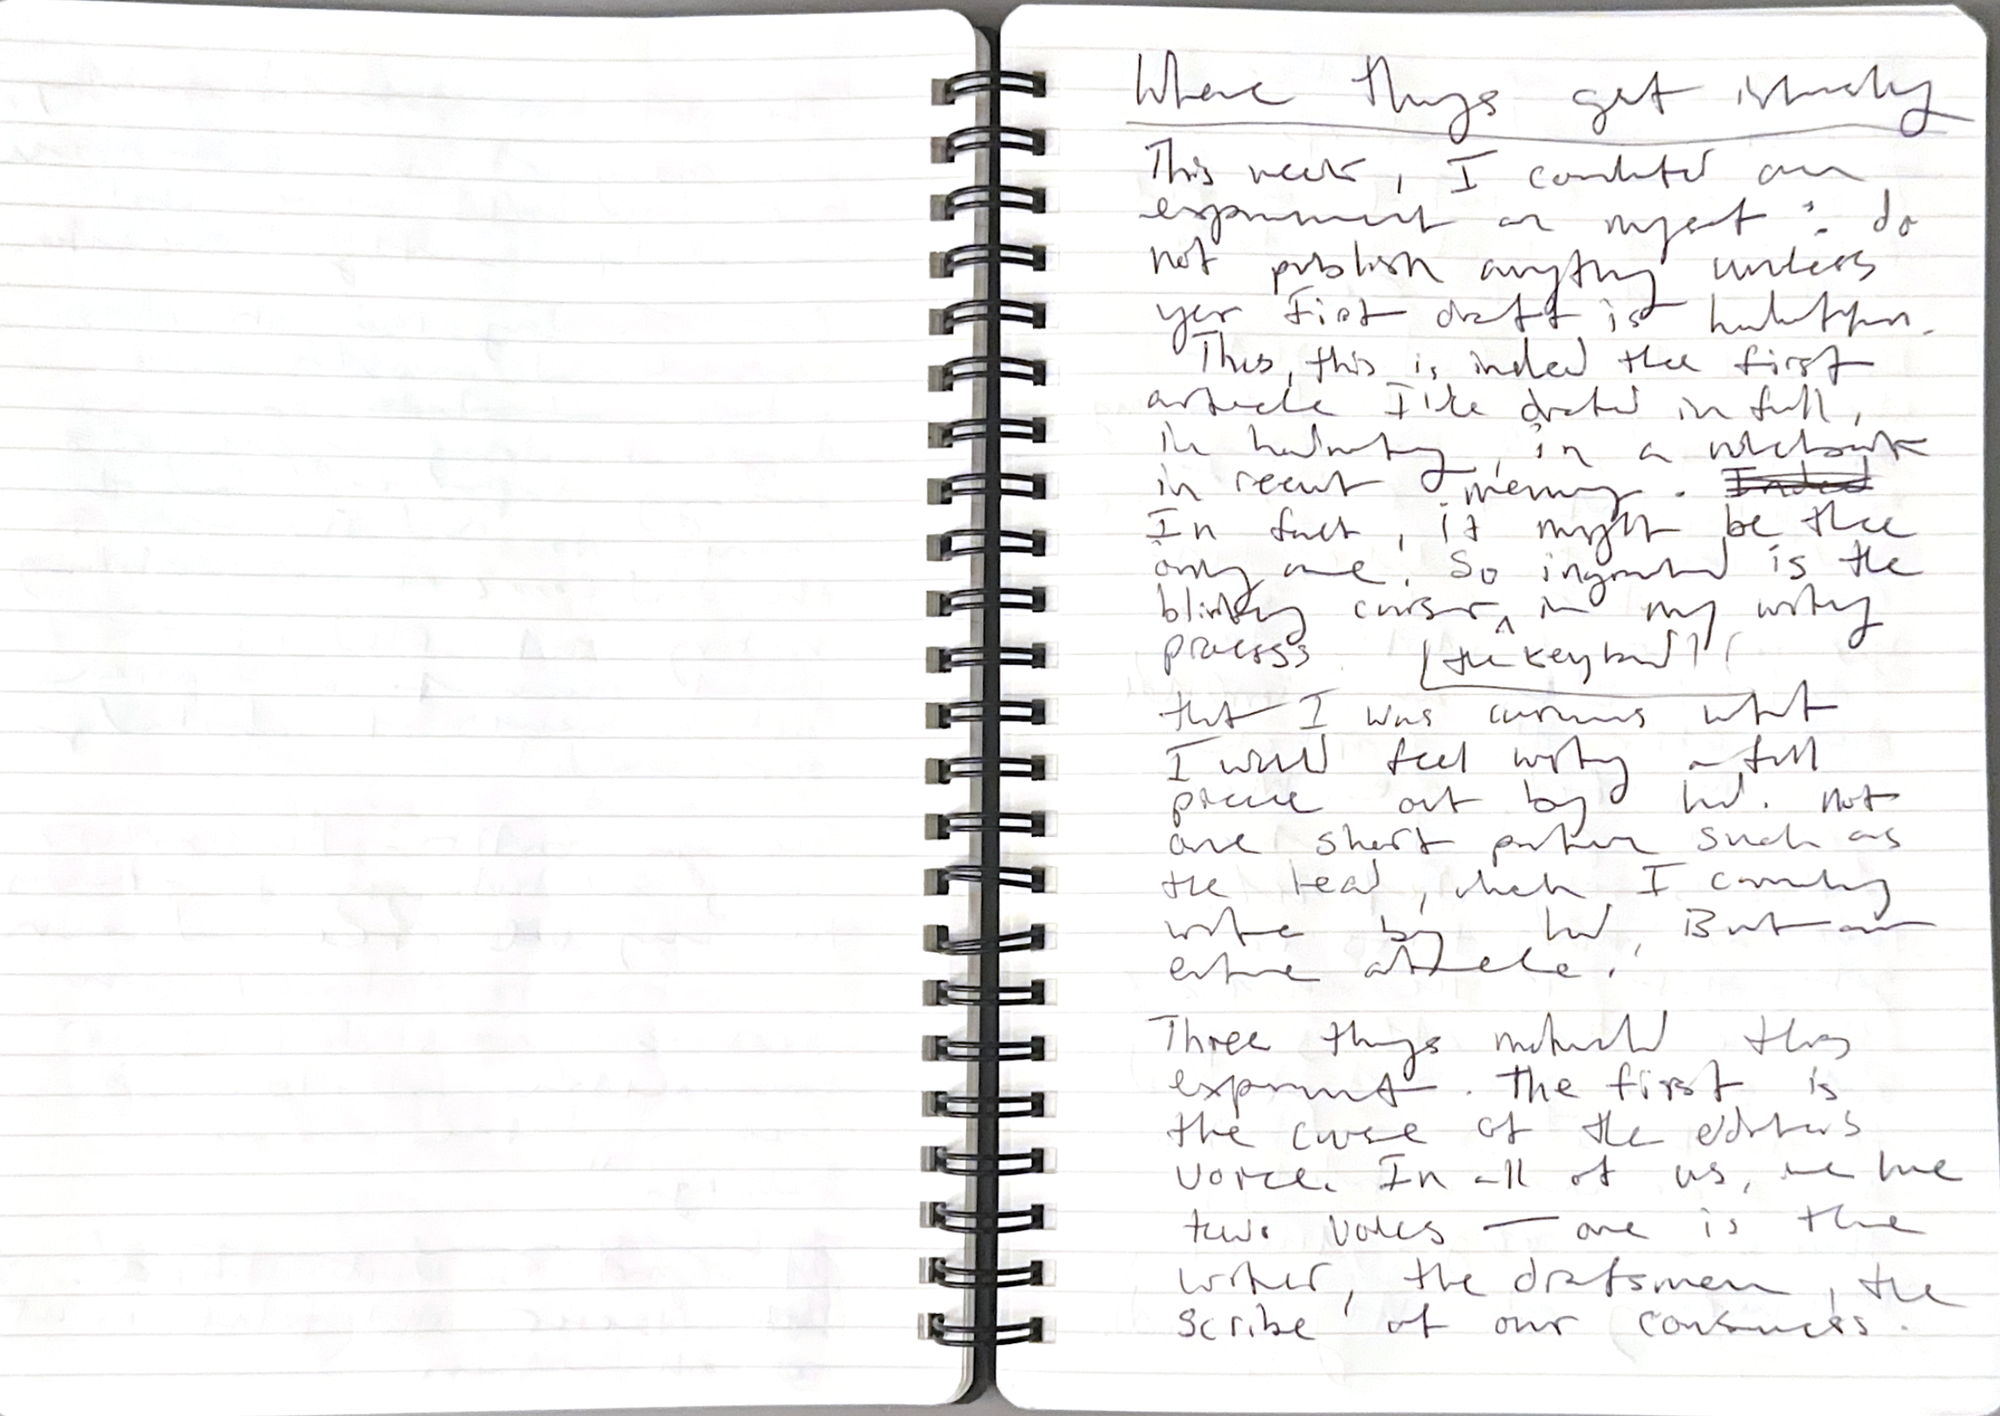 Where things get
This week, I conducted an
experiment on myself: do
not publish anything unless
your first draft is handwritten.
Thus, this is indeed the first
article I've drafted in full,
in handwriting, in a notebook
in recent memory. Indeed
In fact, it might be the
only one. So ingrained is the
blinking cursor in my writing
process [the keyboard]
that I was curious what
I would feel writing a full
piece out by hand. Not
one short portion such as
the lead, which I commonly
write by hand, But an
entire article.
Three things motivated this
experiment. The first is
the curse of the editor's
voice. In all of us, we have
two voices — one is the
writer, the draftsman, the
scribe of our consciousness.